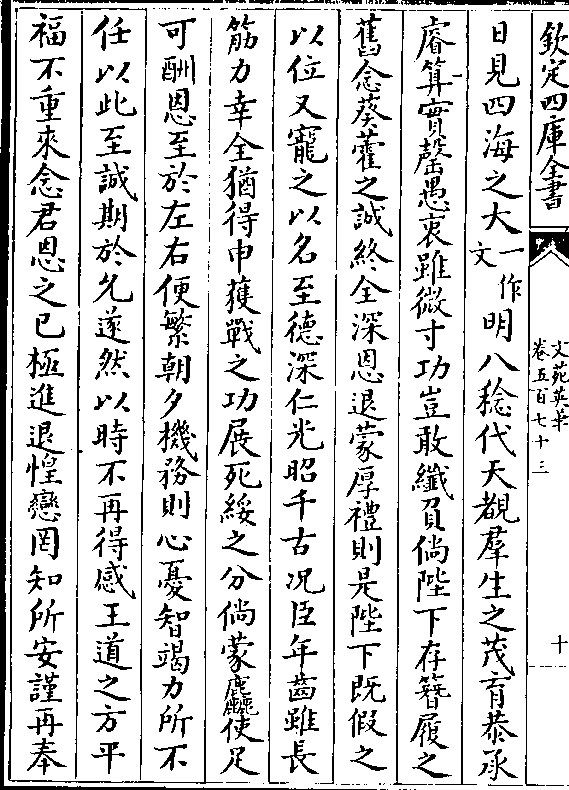 欽定四庫全書
文苑英華
卷五百七十三
十
日見四海之大一作文明八稔代天覩羣生之茂育恭承
睿筭實罄愚衷雖微寸功豈敢纖負倘陛下存簪履之
舊念葵藿之誠終全深恩退蒙厚禮則是陛下既假之
以位又寵之以名至德深仁光昭千古况臣年齒雖長
筋力幸全猶得申獲戰之功展死綏之分倘蒙麤使足
可酬恩至於左右便繁朝夕機務則心憂智竭力所不
任以此至誠期於允遂然以時不再得感王道之方平
福不重來念君恩之已極進退惶戀罔知所安謹再奉